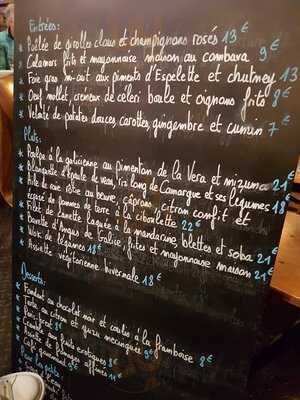 Entrées:
* Poêlée de girolles clous et champignons rosés 13 €
* Calamars frits et mayonnaise maison au combava 9 €
* Foie gras mi-cuit aux piments d'Espelette et chutney 13 €
* Oeuf mollet, crémeux de céleri boule et oignons frits 8 €
* Velouté de patates douces, carottes, gingembre et cumin 7 €
Plats:
* Poulpe à la galicienne au pimenton de la Vera et mizuna 21 €
* Blanquette d'épaule de veau, riz long de Camargue et ses légumes 18 €
* Aile de raie rôtie au beurre, câprons, citron confit et
écrasé de pommes de terre à la ciboulette 22 €
* de canette laquée à la mandarine, blettes et soba 21 €
* Bavette d'Angus de Galice, frites et mayonnaise maison 21 €
* de légumes 18 €
* Assiette végétarienne hivernale 18 €
Desserts:
* Fondant au chocolat noir et coulis à la framboise 8 €
* au citron et yuzu meringuée 9 €
* Paris brest 8 €
* fruits exotiques 8 €
* de fromages affinés 11 €
* Café gourmand